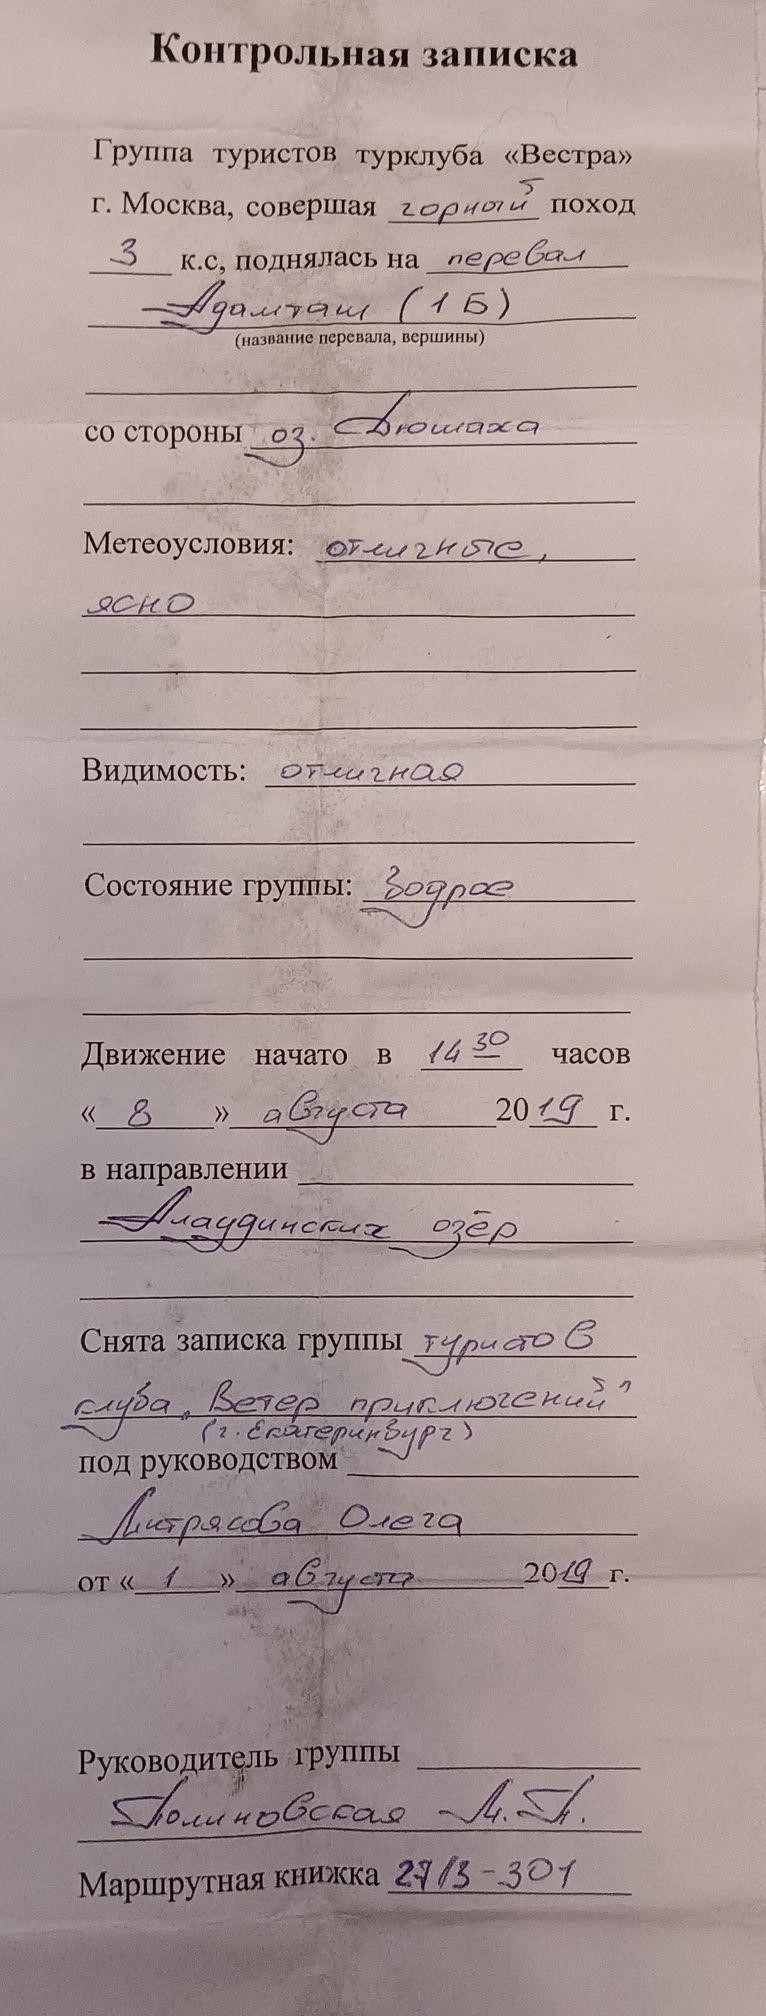 Контрольная записка
Группа туристов турклуба «Вестра»
г. Москва, совершая горный поход
3 к.с, поднялась на перевал
Адамташ (1Б)
(название перевала, вершины)
со стороны оз. Дюшаха
Метеоусловия: отличные,
ясно
Видимость: отличная
Состояние группы: бодрое
Движение начато в 14 30 часов
«8» августа 2019 г.
в направлении
Алаудинских озёр
Снята записка группы туристов
клуба „Ветер приключений"
(г. Екатеринбург)
под руководством
Митрясова Олега
от «1» августа 2019 г.
Руководитель группы
Полиновская М.П.
Маршрутная книжка 27/3-301